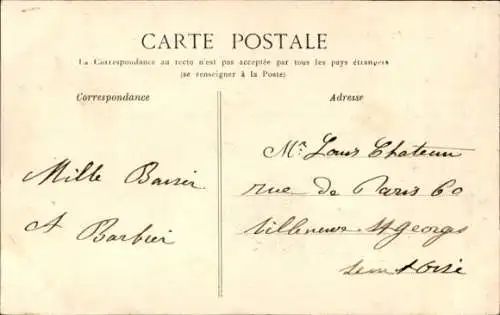 CARTE POSTALE
La Correspondance au recto n'est pas acceptée par tous les pays étrangers
(se renseigner à la Poste)
Correspondance
Adresse
Mille Baiser
A Barbier
Mr Louis Chateau
rue de Paris 60
Villeneuve St Georges
Seine & Oise